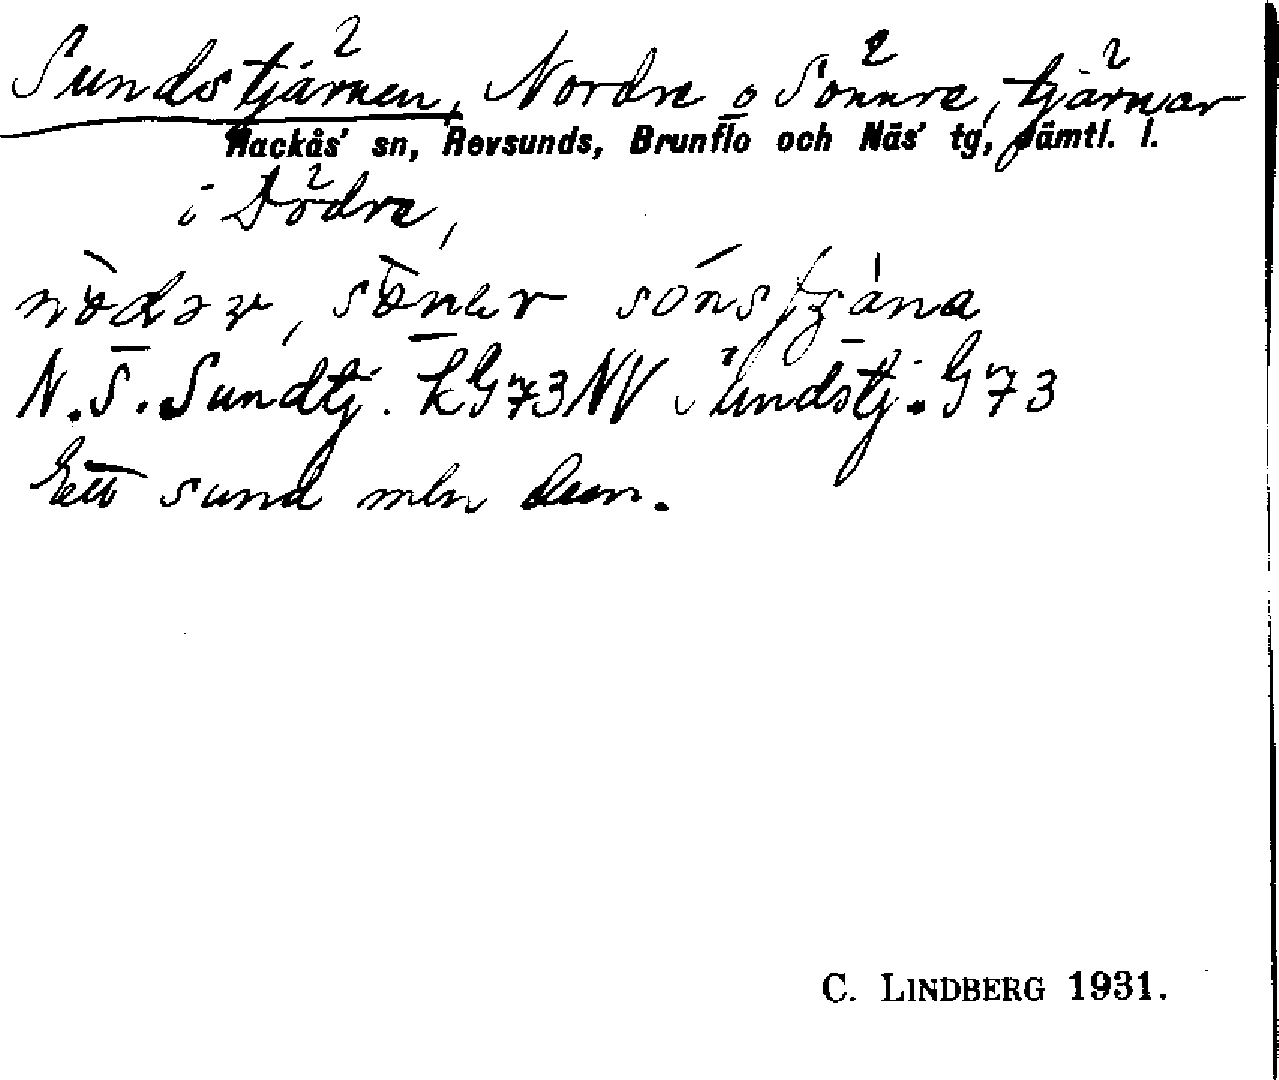 Sundstjärnen, Nordre o Sönnre, tjärnar
Hackås' sn, Revsunds, Brunflo och Näs' tg, Jämtl. l.
i Dödre,
N. S. Sundtj. kG73NV Sundstj. G73
Ett sund mln dem.
C. LINDBERG 1931.